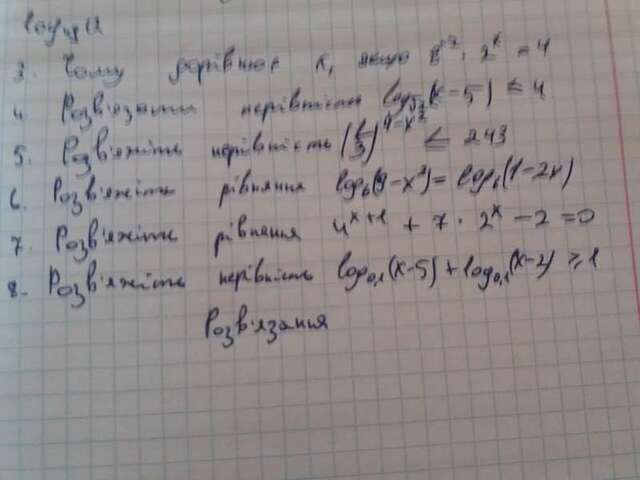 3. Чому дорівнює x, якщо 8⁻² · 2ˣ = 4
4. Розв'язати нерівність (x-5) ≤ 4
5. Розв'яжіть нерівність (1/3)^(4-x²) ≤ 243
6. Розв'яжіть рівняння log₆(9-x²) = log₆(1-2x)
7. Розв'яжіть рівняння 4ˣ⁺¹ + 7 · 2ˣ - 2 = 0
8. Розв'яжіть нерівність log₀,₁(x-5) + log₀,₁(x-2) ≥ 1
Розв'язання